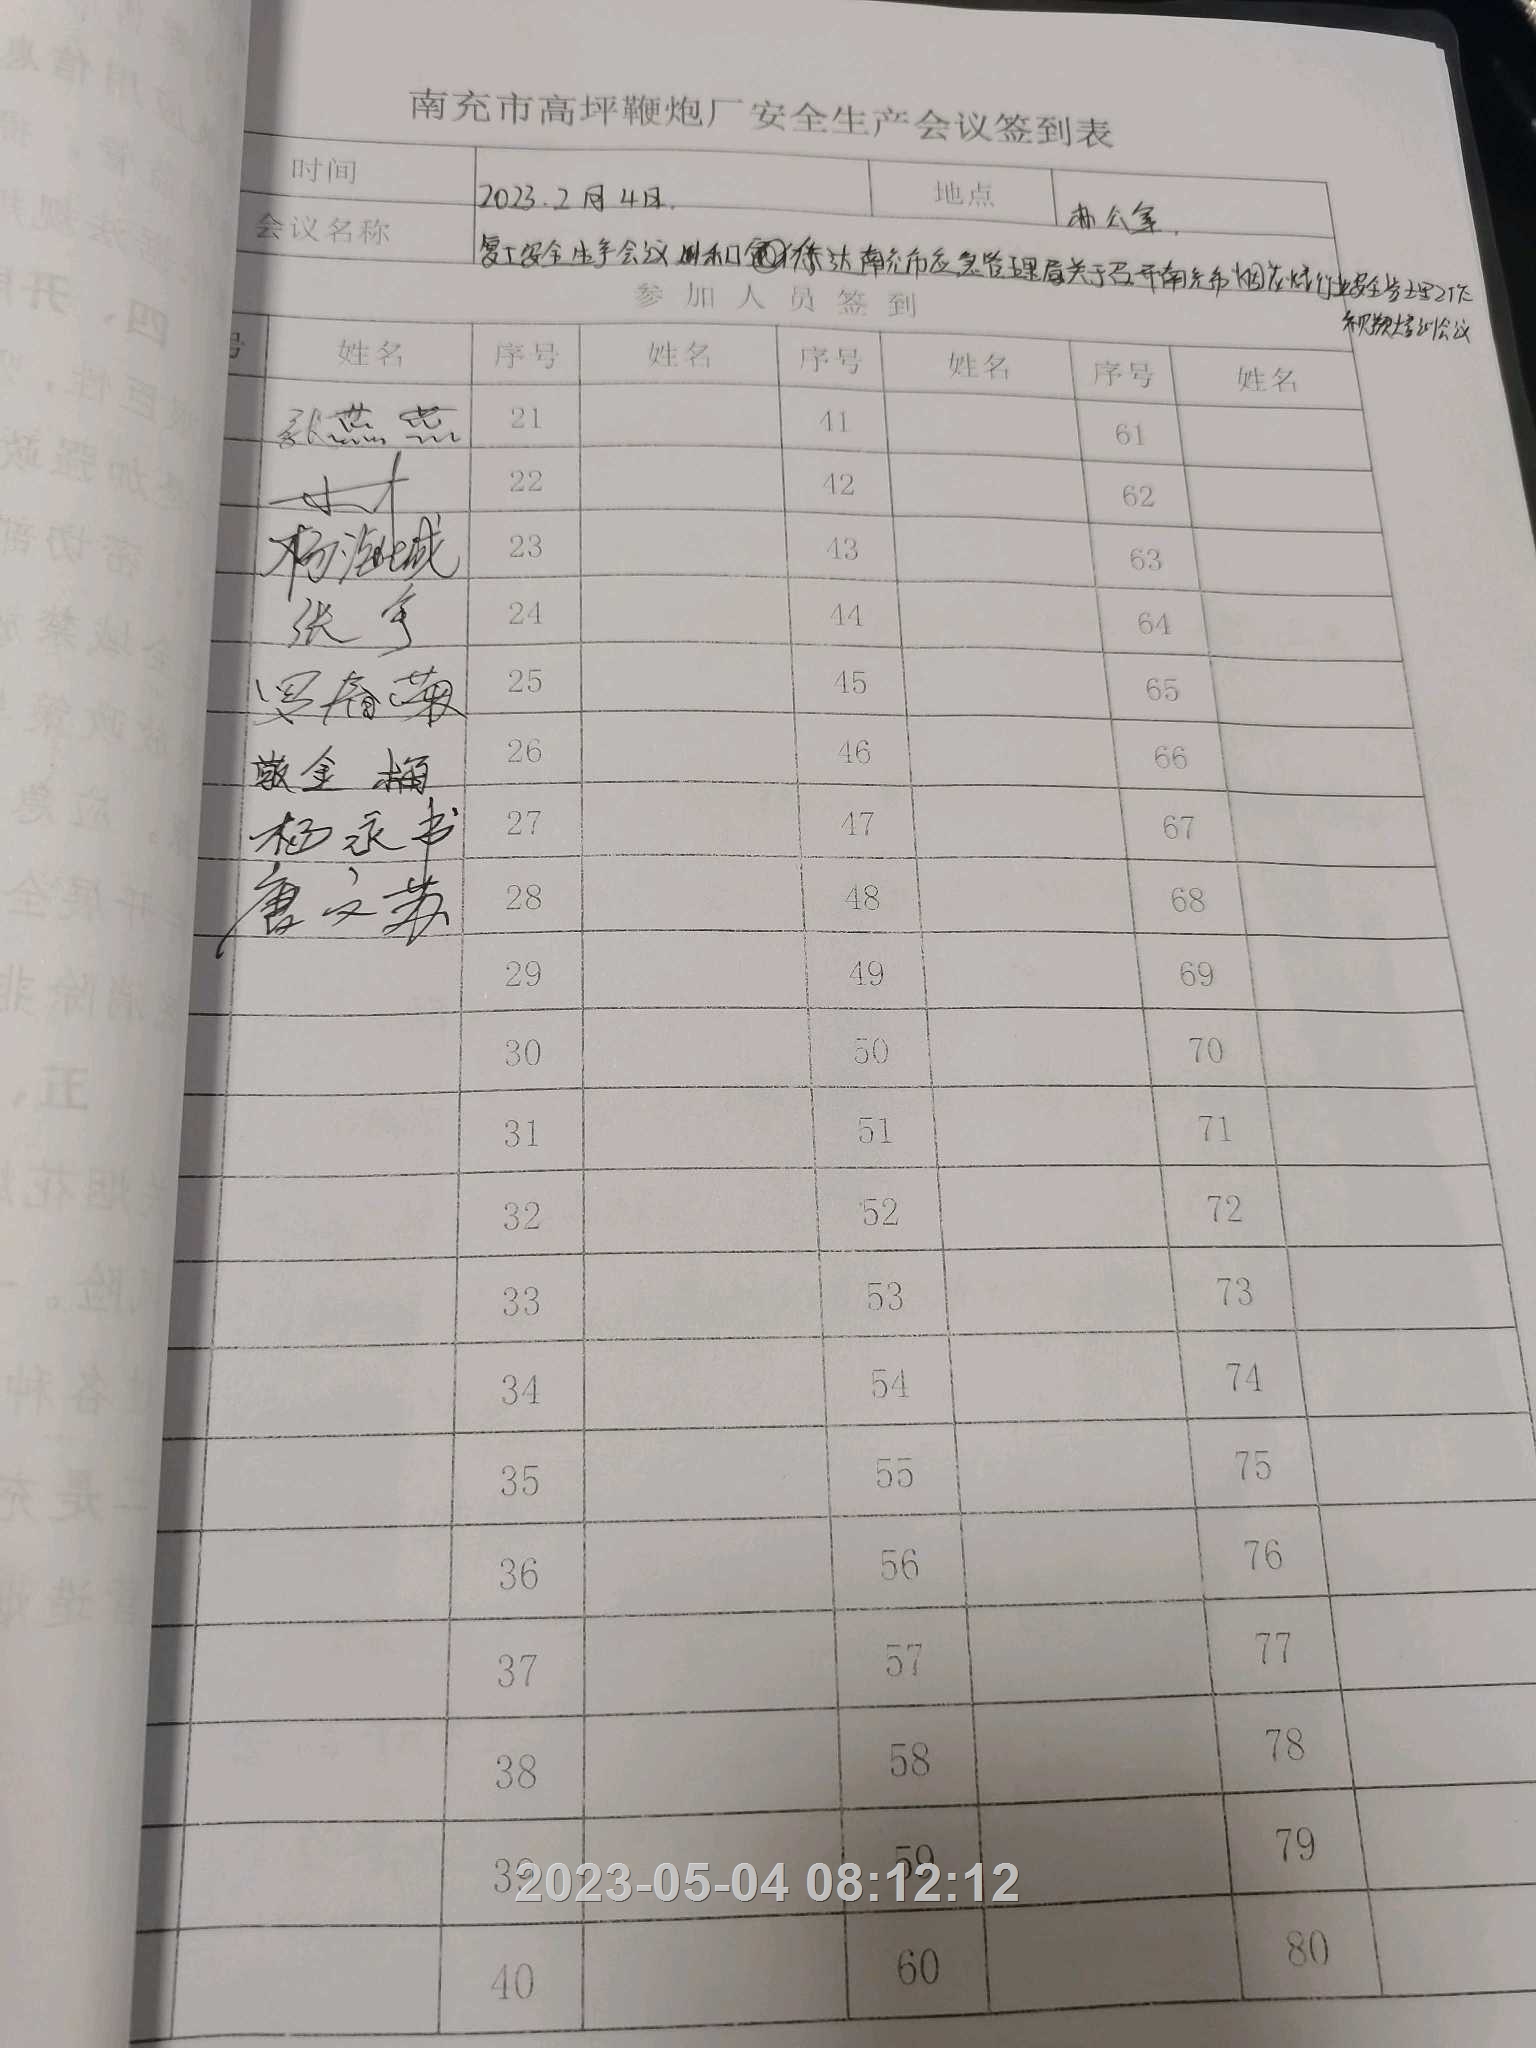 南充市高坪鞭炮厂安全生产会议签到表
时间 2023.2月4日. 地点 办公室.
会议名称 复工安全生产会议 传达南充市应急管理局关于召开南充市烟花爆竹行业安全管理工作
视频培训会议
参加人员签到
号 姓名 序号 姓名 序号 姓名 序号 姓名
张燕 21 41 61
22 42 62
杨海城 23 43 63
张 24 44 64
罗春菊 25 45 65
敬金桶 26 46 66
杨永书 27 47 67
唐文苏 28 48 68
29 49 69
30 50 70
31 51 71
32 52 72
33 53 73
34 54 74
35 55 75
36 56 76
37 57 77
38 58 78
39 59 79
40 60 80
2023-05-04 08:12:12